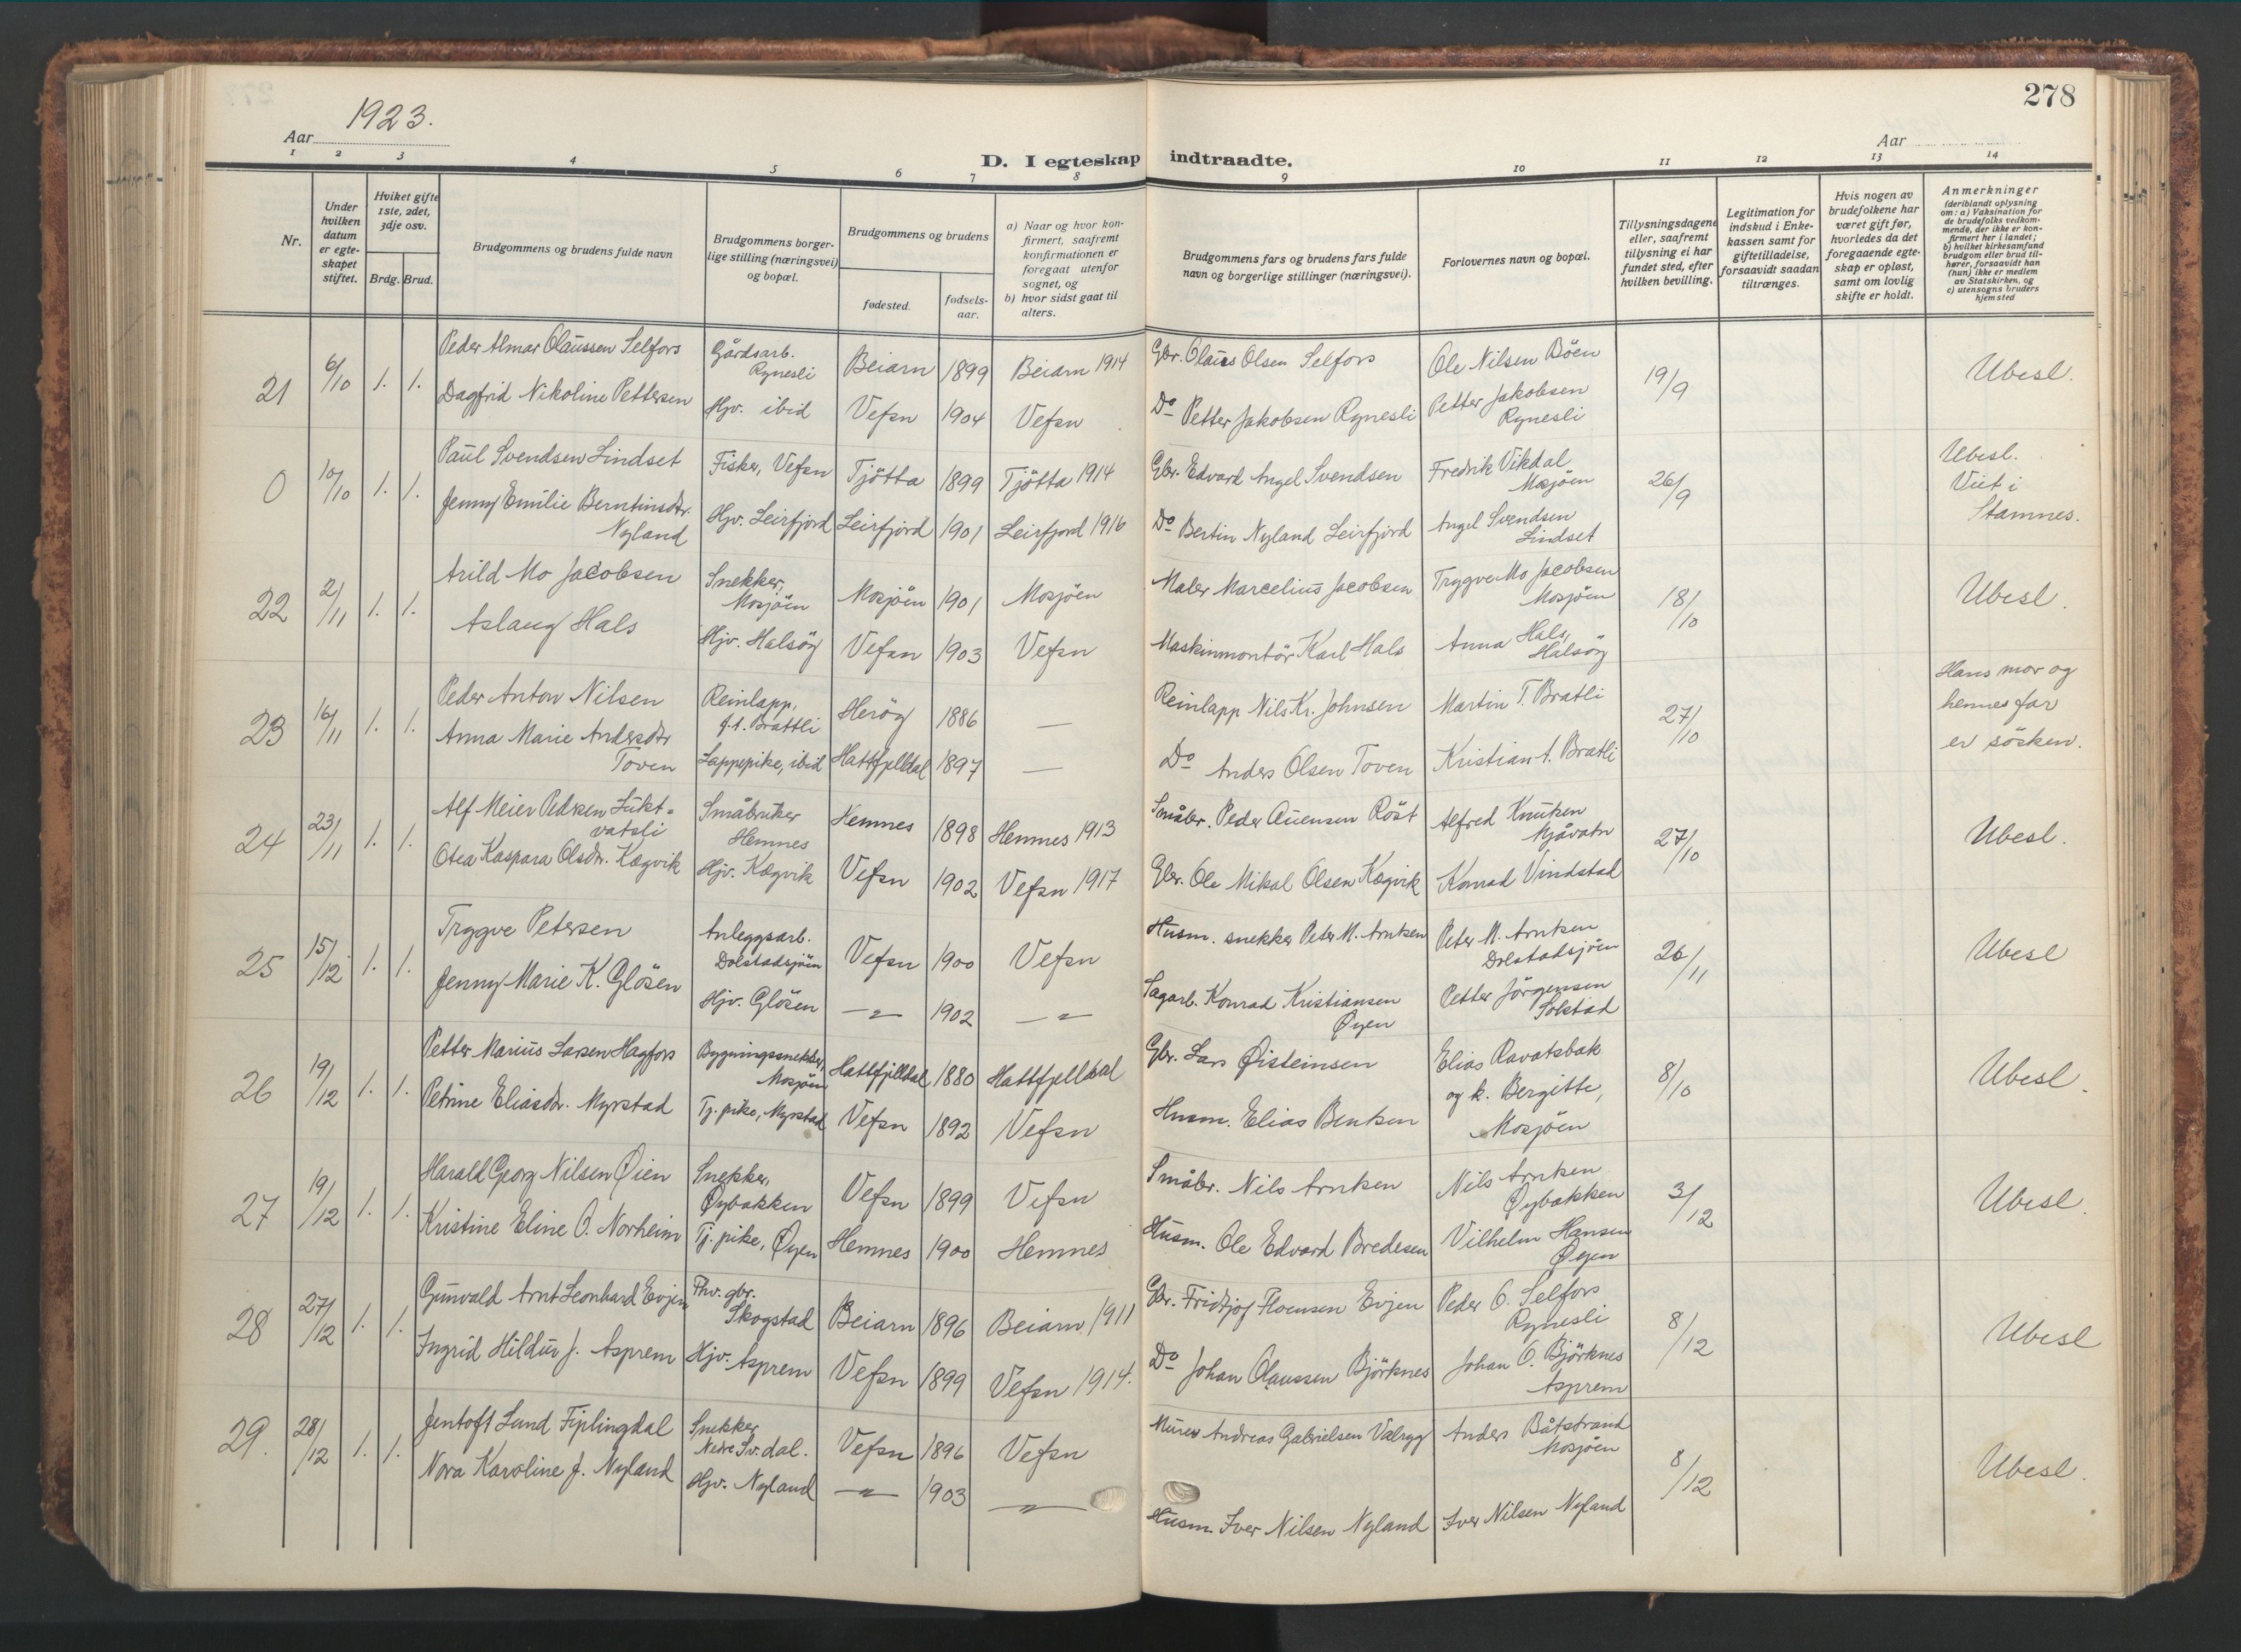 278
1923.
Aar
Aar
D. I egteskap indtraadte.
1 2 3 4 5 6 7 8 9 10 11 12 13 14
Nr.
Under hvilken datum er egteskapet stiftet.
Hviket gifte 1ste, 2det, 3dje osv.
Brdg. Brud.
Brudgommens og brudens fulde navn
Brudgommens borgerlige stilling (næringsvei) og bopæl.
Brudgommens og brudens
fødested.
fødselsaar.
a) Naar og hvor konfirmert, saafremt konfirmationen er foregaat utenfor sognet, og
b) hvor sidst gaat til alters.
Brudgommens fars og brudens fars fulde navn og borgerlige stillinger (næringsvei).
Forlovernes navn og bopæl.
Tillysningsdagene eller, saafremt tillysning ei har fundet sted, efter hvilken bevilling.
Legitimation for indskud i Enkekassen samt for giftetilladelse, forsaavidt saadan tiltrænges.
Hvis nogen av brudefolkene har været gift før, hvorledes da det foregaaende egteskap er opløst, samt om lovlig skifte er holdt.
Anmerkninger (deriblandt oplysning om: a) Vaksination for de brudefolks vedkommende, der ikke er konfirmert her i landet; b) hvilket kirkesamfund brudgom eller brud tilhører, forsaavidt han (hun) ikke er medlem av Statskirken, og c) utensogns bruders hjemsted
21 6/10 1. 1. Peder Almar Olaussen Selfors Gårdsarb. Rynesli Beiarn 1899 Beiarn 1914 Gbr. Olaus Olsen Selfors Ole Nilsen Böen 19/9 Ubesl.
Dagfrid Nikoline Pettersen Hjv. ibid Vefsn 1904 Vefsn Do Petter Jakobsen Rynesli Petter Jakobsen Rynesli
0 10/10 1. 1. Paul Svendsen Lindset Fisker, Vefsn Tjötta 1899 Tjötta 1914 Gbr. Edvard Angel Svendsen Fredrik Vikdal Mosjöen 26/9 Ubesl. Viet i Stamnes.
Jenny Emilie Berntinsdtr. Nyland Hjv. Leirfjord Leirfjord 1901 Leirfjord 1916 Do Bertin Nyland Leirfjord Angel Svendsen Lindset
22 2/11 1. 1. Arild Mo Jacobsen Snekker, Mosjöen Mosjöen 1901 Mosjöen Maler Marcelius Jacobsen Trygve Mo Jacobsen Mosjöen 18/10 Ubesl.
Aslaug Hals Hjv. Halsöy Vefsn 1903 Vefsn Maskinmontör Karl Hals Anna Hals, Halsöy
23 16/11 1. 1. Peder Anton Nilsen Reinlapp, f.t. Brattli Heröy 1886 — Reinlapp Nils Kr. Johnsen Martin T. Bratli 27/10 Hans mor og hennes far er sösken.
Anna Marie Andersdtr Toven Lappepike, ibid Hattfjelldal 1897 — Do Anders Olsen Toven Kristian A. Bratli
24 23/11 1. 1. Alf Meier Pedersen Luktvatsli Småbruker Hemnes Hemnes 1898 Hemnes 1913 Småbr. Peder Röst Alfred Knutsen 27/10 Ubesl.
Otea Kaspara Olsdtr. Kægvik Hjv. Kægvik Vefsn 1902 Vefsn 1917 Gbr. Ole Mikal Olsen Kægvik Konrad Vindstad
25 15/12 1. 1. Trygve Petersen Anleggsarb. Dolstadsjöen Vefsn 1900 Vefsn Husm. snekker Peter M. Arntsen Peter M. Arntsen Dolstadsjöen 26/11 Ubesl
Jenny Marie K. Glösen Hjv. Glösen —"— 1902 —"— Sagarb. Konrad Kristiansen Øyen Petter Jörgensen Solstad
26 19/12 1. 1. Petter Marius Larsen Hagfors Bygningssnekker, Mosjöen Hattfjelldal 1880 Hattfjelldal Gbr. Lars Øisteinsen Elias Ravatsbak og k. Bergitte, Mosjöen 8/10 Ubesl.
Petrine Eliasdtr. Myrstad Tj. pike, Myrstad Vefsn 1892 Vefsn Husm. Elias Bentsen
27 19/12 1. 1. Harald Georg Nilsen Øien Snekker, Øybakken Vefsn 1899 Vefsn Småbr. Nils Arntsen Nils Arntsen Øybakken 3/12 Ubesl.
Kristine Eline O. Norheim Tj. pike, Øyen Hemnes 1900 Hemnes Husm. Ole Edvard Bredesen Vilhelm Hansen Øyen
28 27/12 1. 1. Gunvald Arnt Leonhard Evjen Fhv. gbr. Skogstad Beiarn 1896 Beiarn 1911 Gbr. Fridtjof Evjen Peder O. Selfors Rynesli 8/12 Ubesl
Ingrid Hildur J. Asprem Hjv. Asprem Vefsn 1899 Vefsn 1914. Do Johan Olaussen Björknes Johan O. Björknes Asprem
29. 28/12 1. 1. Jentoft Lund Fiplingdal Snekker Nedre Sv.dal. Vefsn 1896 Vefsn Murer Andreas Gabrielsen Valryg Anders Båtstrand Mosjöen 8/12 Ubesl.
Nora Karoline J. Nyland Hjv. Nyland —"— 1903 —"— Husm. Iver Nilsen Nyland Iver Nilsen Nyland